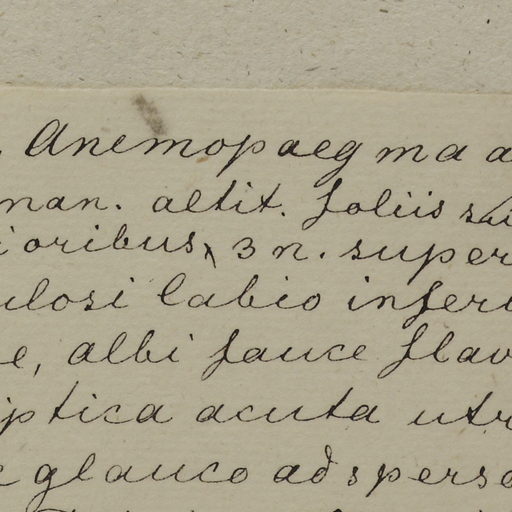 Anemopaegma a
man. altit. foliis
ioribus, 3 n. super
ulosi labio inferi
e, albi fauce flav
iptica acuta utr
c glauco adsperso